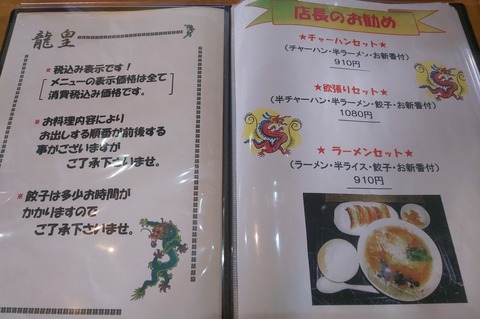 龍皇
※ 税込み表示です！
メニューの表示価格は全て
消費税込み価格です。
※ お料理内容により
お出しする順番が前後する
事がございますが
ご了承下さいませ。
※ 餃子は多少お時間が
かかりますので
ご了承下さいませ。
店長のお勧め
★チャーハンセット★
（チャーハン・半ラーメン・餃子・お新香付）
910円
★欲張りセット★
（半チャーハン・ラーメン・餃子・お新香付）
1080円
★ラーメンセット★
（ラーメン・半ライス・餃子・お新香付）
910円